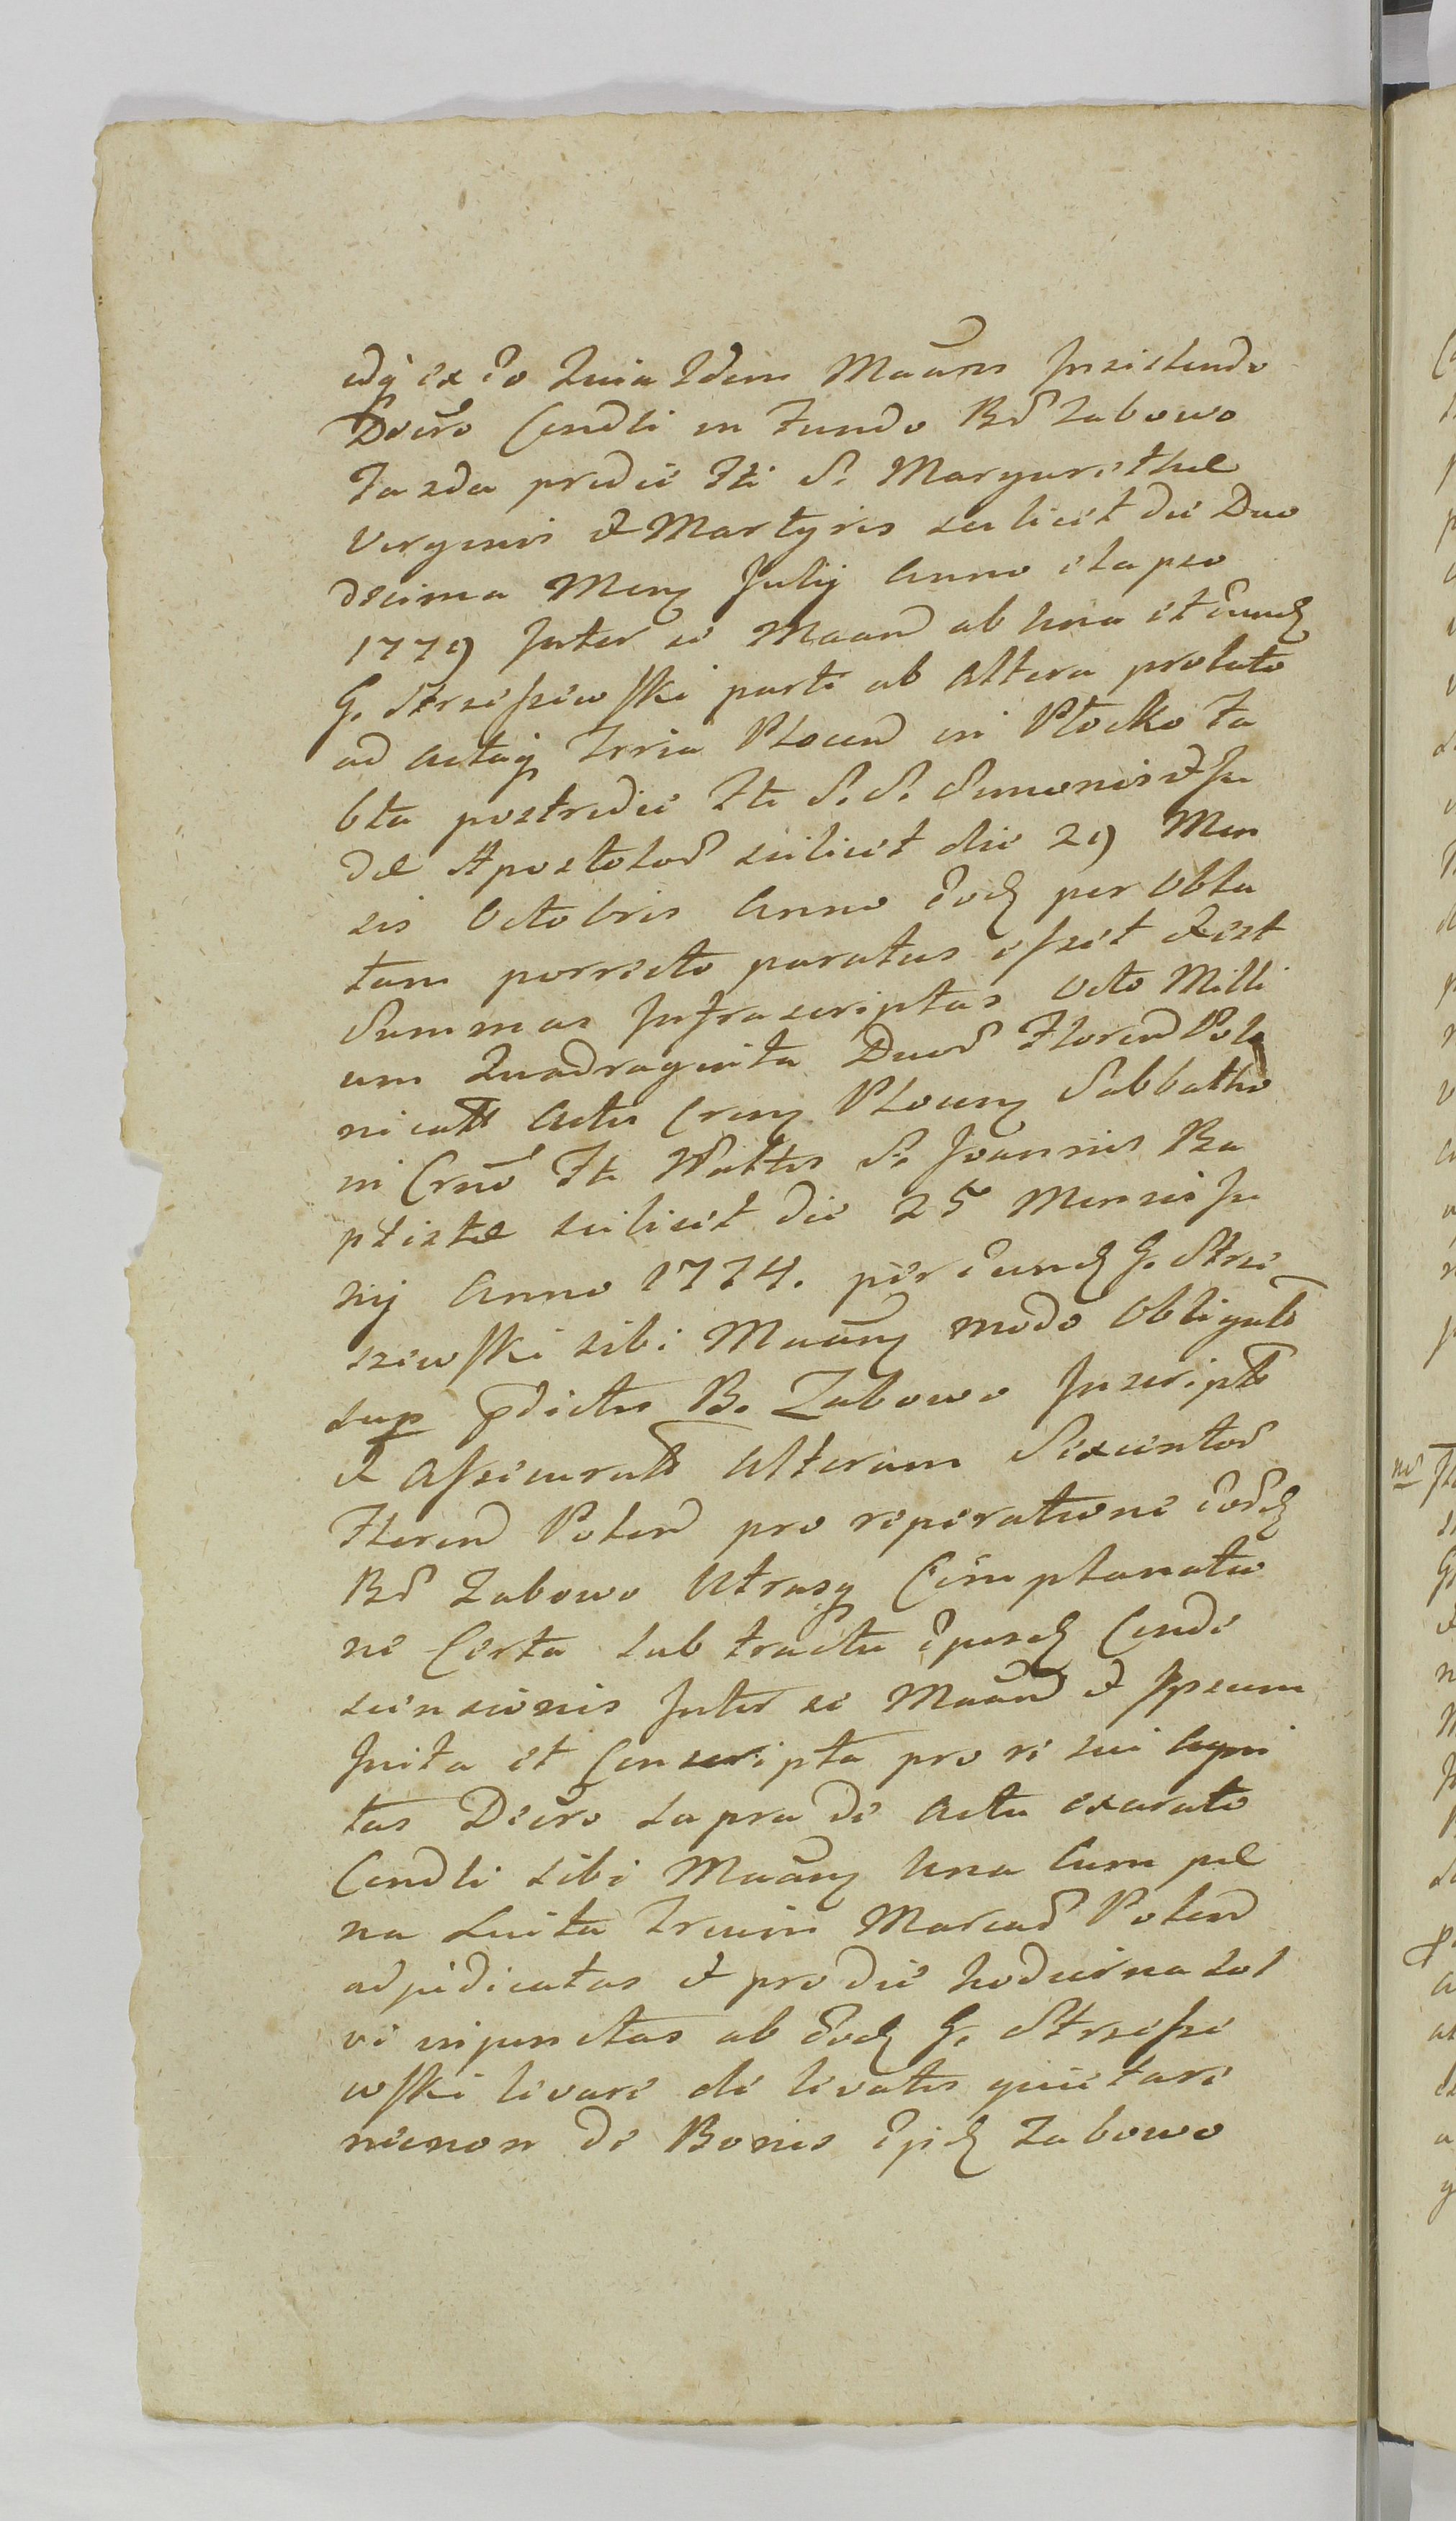 idq ex eo Quia Idem Maans Insistendo
Decro Condli in Fundo Bd Zabowo
Feria 2da pridie Fti S. Margarethæ
Virginis & Martyris scilicet die Duo
decima Mens Julij Anno elapso
1779 Inter se Maand ab Una et eund
G. Strzeszewski parte ab Altera prolato
ad Actaq Trria Plocen in Plocko Sa
bto postridie Fti S. S. Simonis & Ju
dæ Apostolor scilicet die 29 Men
sis Octobris Anno eod per Obla
tam porrecto paratus esset & est
Summas Infrascriptas Octo Milli
um Quadraginta Duor Floren Polo
nicall Actis Cren Plocen Sabbatho
in Crno Fti Nattis S. Joannis Ba
ptistæ scilicet die 25 Mensis Ju
nij Anno 1774. per eund G. Strze
szewski sibi Maans modo Obligato
sup pdictis B. Zabowo Inscript
& Assecurat Alteram Sexcentor
Floren Polon pro reperatione eord
Bd Zabowo Utrasq Complanatio
ne Certa sub tractu ejusd Conde
scensionis Inter se Maand & Ipsum
Inita et Conscripta pro re sui Cogni
tas Decro supra de Actu exarato
Condli sibi Maans Una Cum pæ
na Luita Trium Marcar Polon
adjudicatas & pro die hodierna sol
vi injunctas ab eod G. Strzesze
wski levare de levatis quietare
necnon de Bonis ejusd Zabowo